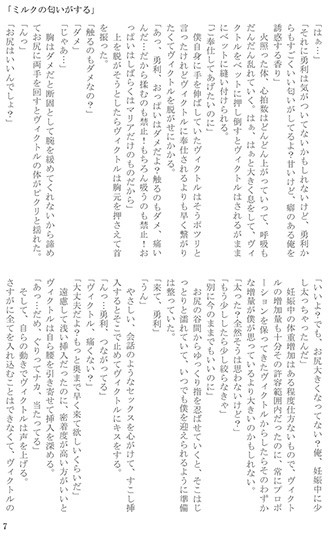 「ミルクの匂いがする」
「はぁ…」
「それに勇利は気がついてないかもしれないけど、勇利か
らもすごくいい匂いがしてるよ？甘いけど、癖のある俺を
誘惑する香り」
火照った体、心拍数はどんどん上がっていって、呼吸も
だんだん乱れていく。はぁ、はぁと大きく息をして、ヴィ
クトルをベットに押し倒すとヴィクトルはされるがまま
にベットに縫い付けられる。
「ご奉仕してあげたいのに」
僕自身に手を伸ばしていたヴィクトルはそうポツリと
言ったけれどヴィクトルに奉仕されるよりも早く繋がり
たくてヴィクトルを脱がせにかかる。
「あっ、勇利、おっぱいはダメだよ？触るのもダメ、痛い
んだ…だから揉むのも禁止！もちろん吸うのも禁止！お
っぱいはしばらくはマリアだけのものだから」
上を脱がそうとしたらヴィクトルは胸元を押さえて首
を振った。
「触るのもダメなの？」
「ダメ」
「じゃあ…」
胸はダメだと断固として腕を緩めてくれないから諦め
てお尻に両手を回すとヴィクトルの体がピクリと揺れた。
「んっ」
「お尻はいいんでしょ？」
「いいよ？でも、お尻大きくなってない？俺、妊娠中に少
し太っちゃったんだ」
妊娠中の体重増加はある程度仕方ないもので、ヴィクト
ルの増加量も十分その許容範囲内だったのに、常にプロポ
ーションを保ってきたヴィクトルからしたらそのわずか
な増量が僕が思っているより大きいのかもしれない。
「太った？全然そうは思わないけど？」
「もう少ししたら絞らなきゃ」
「別に今のままでもいいのに」
お尻の谷間からゆっくり指を忍ばせていくと、そこはじ
っとりと濡れていて、いつでも僕を迎えられるように準備
は整っていた。
「来て、勇利」
「うん」
やさしい、会話のようなセックスを心がけて、すこし挿
入するとそこで止めてヴィクトルにキスをする。
「んっ…勇利、つながってる」
「ヴィクトル、痛くない？」
「大丈夫だよ？もっと奥まで早く来て欲しいくらいだ」
遠慮して浅い挿入だったのに、密着度が高い方がいいと
ヴィクトルは自ら腰を引き寄せて挿入を深める。
「あっ…だめ、ぐりってナカ、当たってる」
そして、自らの動きでヴィクトルは声を上げる。
さすがに全てを入れ込むことはできなくて、ヴィクトルの
7